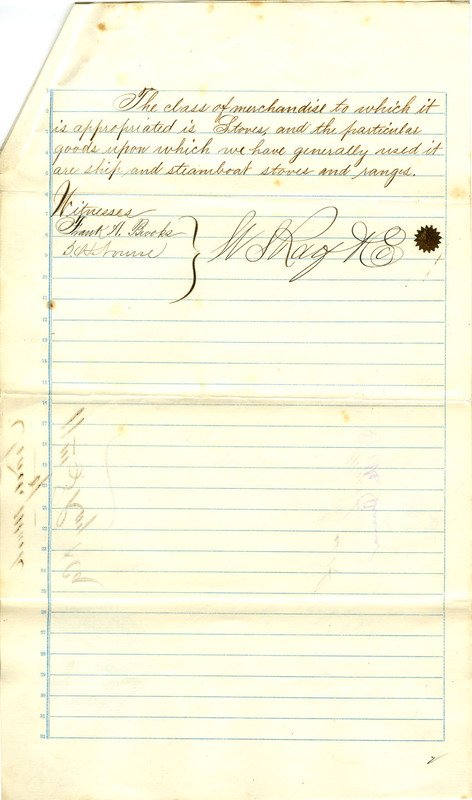 The class of merchandise to which it
is appropriated is Stoves, and the particular
goods upon which we have generally used it
are ship and steamboat stoves and ranges.
Witnesses
Frank A. Brooks
W S Ray
2